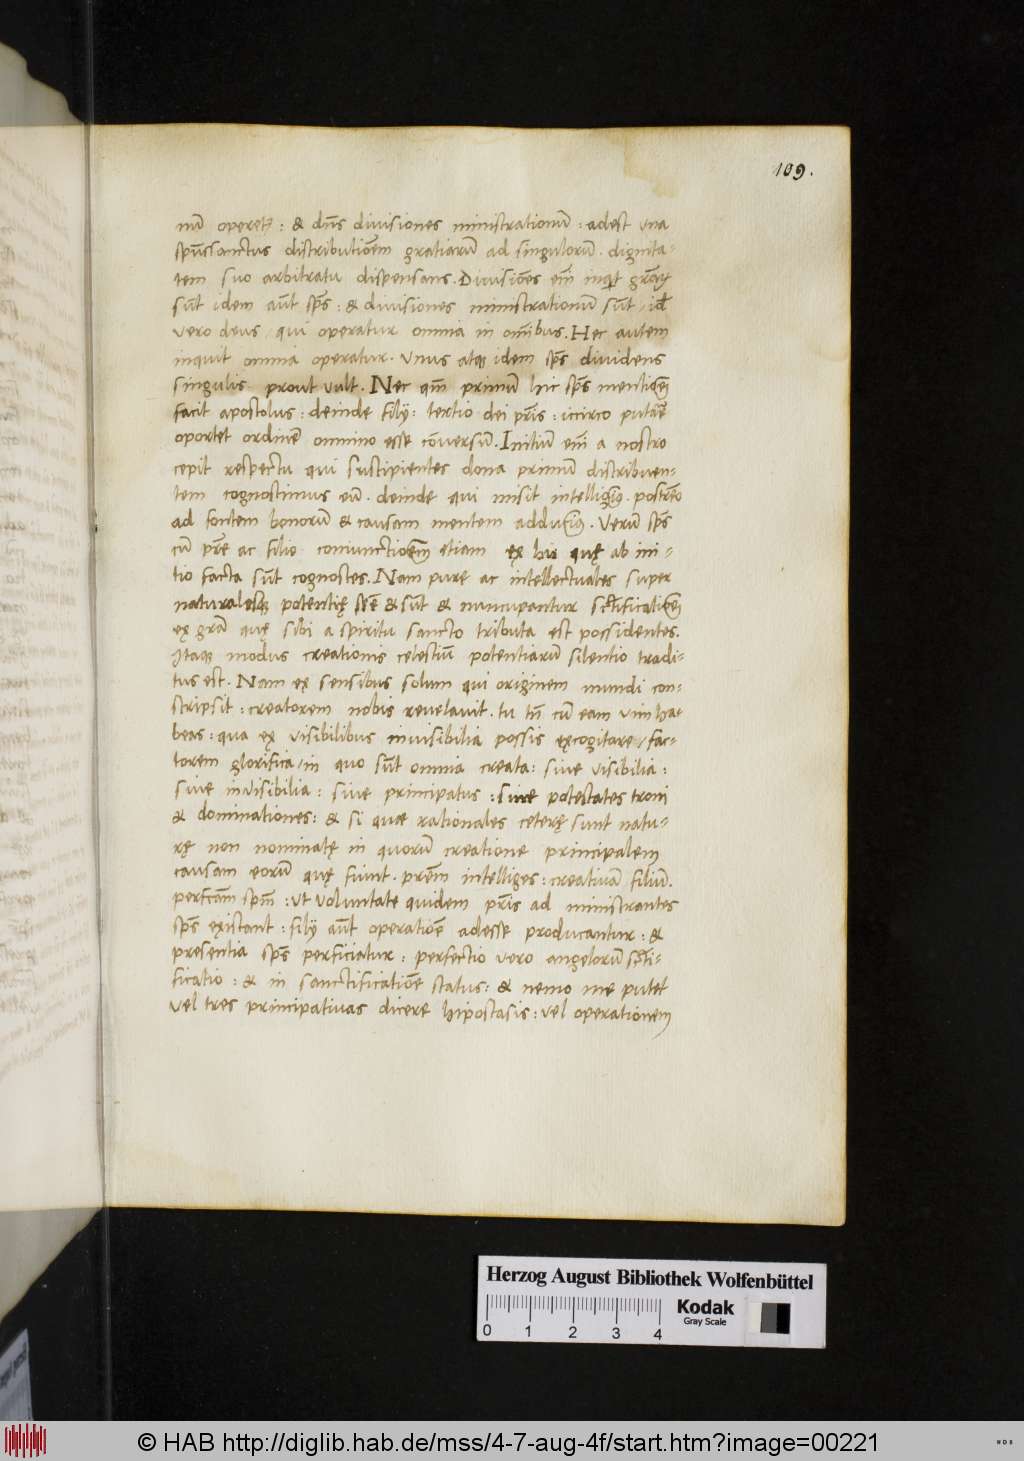 109.
nũ operet̃ : & dñs divisiones ministrationũ : adest una
spũssanctus distributiõem gratiarũ ad singulorũ dignita-
tem suo arbitratu dispensans. Divisiões em̃ inq̃t grãꝝ
sũt idem aũt sp̃s : & divisiones ministrationũ sũt / id̃
vero deus / qui operatur omnia in om̃ibus. Hec autem
inquit omnia operatur. Unus atqꝫ idem sp̃s dividens
singulis prout vult. Nec qm̃ primũ hic sp̃s
facit apostolus : deinde filij : tertio dei pr̃is : iccirco putãe
oportet ordinẽ omnino esse cõversũ. Initiũ em̃ a nostro
cepit respectu qui suscipientes dona primũ distribuen-
tem cognoscimus eũ. deinde qui misit
ad fontem bonorũ & causam mentem . Verũ sp̃s
cũ pr̃e ac filio coniunctiõem etiam ex his quę ab ini-
tio facta sũt cognosces. Nam pure ac intellectuales super
naturalesqꝫ potentię & sũt & nuncupantur
ex grã quę sibi a spiritu sancto tributa est possidentes.
Itaqꝫ modus creationis celestiũ potentiarũ silentio tradi-
tus est. Nam ex sensibus solum qui originem mundi con-
scripsit : creatorem nobis revelavit. tu tñ cũ eam vim ha-
beas : qua ex visibilibus invisibilia possis excogitare / fac-
torem glorifica / in quo sũt omnia creata : sive visibilia :
sive invisibilia : sive principatus : sive potestates troni
& dominationes : & si quæ rationales ceterę sunt natu-
rę non nominatę in quorũ creatione principalem
causam eorũ quę fiunt. pr̃em intelliges : creativã filiũ.
perfcãm spm̃ : ut voluntate quidem pr̃is ad ministrantes
sp̃s existant : filij aũt operatiõe adesse producantur : &
presentia sp̃s perficiatur : perfectio vero angelorũ sc̃ti-
ficatio : & in sanctificatiõe status : & nemo me putet
vel tres principativas dicere hipostasis : vel operationem
Herzog August Bibliothek Wolfenbüttel
0 1 2 3 4
Kodak
Gray Scale
© HAB http://diglib.hab.de/mss/4-7-aug-4f/start.htm?image=00221